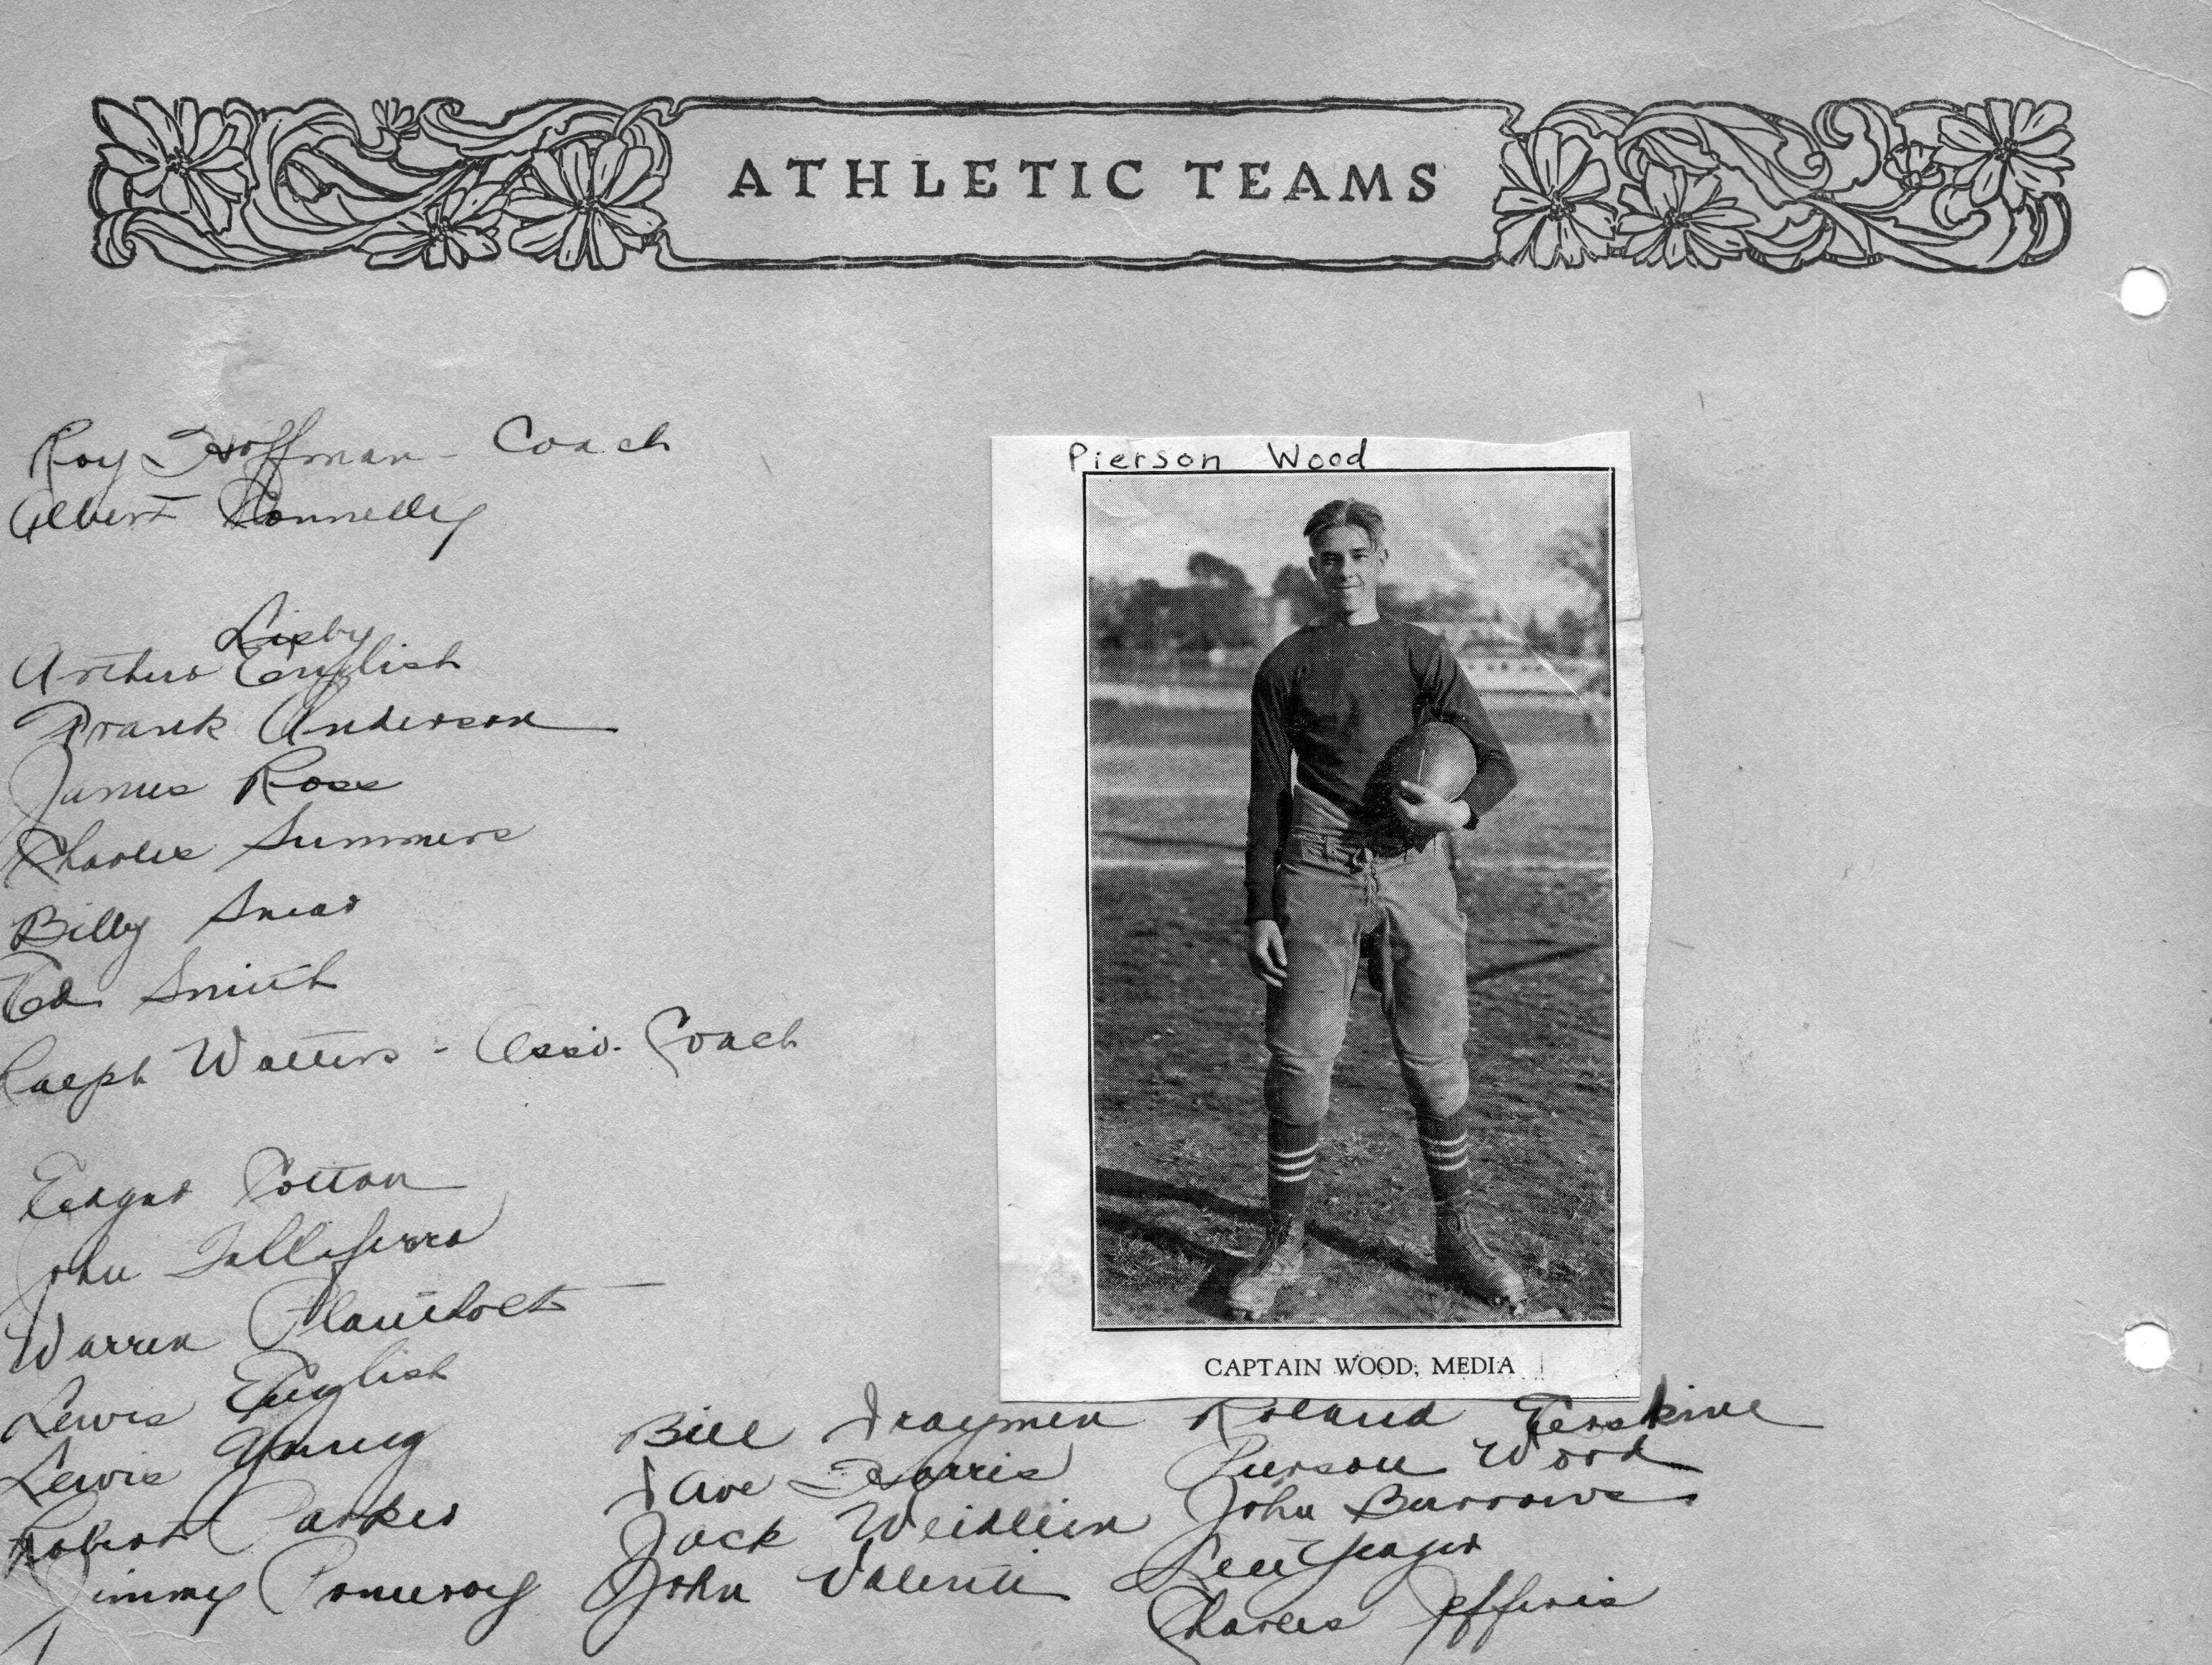 ATHLETIC TEAMS
Roy Hoffman - Coach
Albert Connelly
Lisby
Arthur English
Frank Anderson
James Ross
Charles Summers
Billy Snead
Ed. Smith
Ralph Watters - Assi. Coach
Edgar Cotton
John Talliferro
Warren Plantholt
Lewis English
Lewis Young
Robert Parker
Jimmy Pomeroy
Pierson Wood
CAPTAIN WOOD, MEDIA
Bill Draymen
Dave Harris
Jack Weidlein
John Valenti
Roland Erskine
Pierson Wood
John Burrows
Yeager
Charles Jefferis